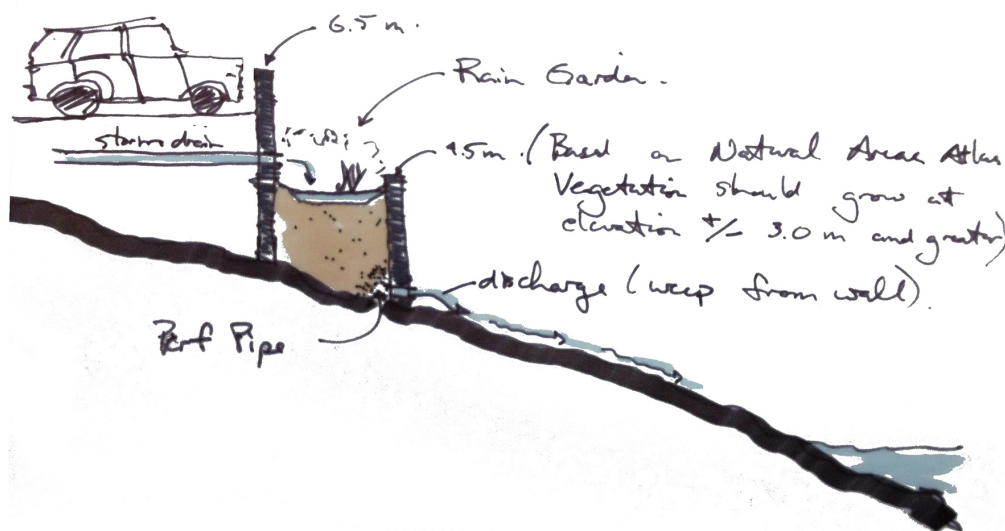 6.5 m.
Rain Garden.
storm drain
4.5m. (Based on Natural Areas Atlas
Vegetation should grow at
elevation +/- 3.0 m and greater)
discharge (weep from wall).
Perf Pipe